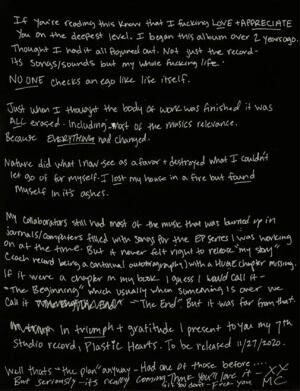 If you're reading this know that I fucking LOVE + APPRECIATE
You on the deepest level. I began this album over 2 years ago.
Thought I had it all figured out. Not just the record.
its songs/sounds but my whole fucking life.
NO ONE checks an ego like life itself.
Just when I thought the body of work was finished it was
ALL erased. Including most of the musics relevance.
Because EVERYTHING had changed.
Nature did what I now see as a favor + destroyed what I couldn't
let go of for myself. I lost my house in a fire but found
myself in its ashes.
My collaborators still had most of the music that was burned up in
journals/computers filled with songs for the EP series I was working
on at the time. But it never felt right to release "my story"
(each record being a continual autobiography) with a HUGE chapter missing.
If it were a chapter in my book I guess I would call it -
"The Beginning" which usually when something is over we
Call it "The End" But it was far from that.
In triumph + gratitude I present to you my 7th
studio record, Plastic Hearts. To be released 11/27/2020.
Well thats "the plan" anyway - Had one of those before...
But seriously - it's really coming. Think you'll love it - XX
if you don't - Fuck you MC